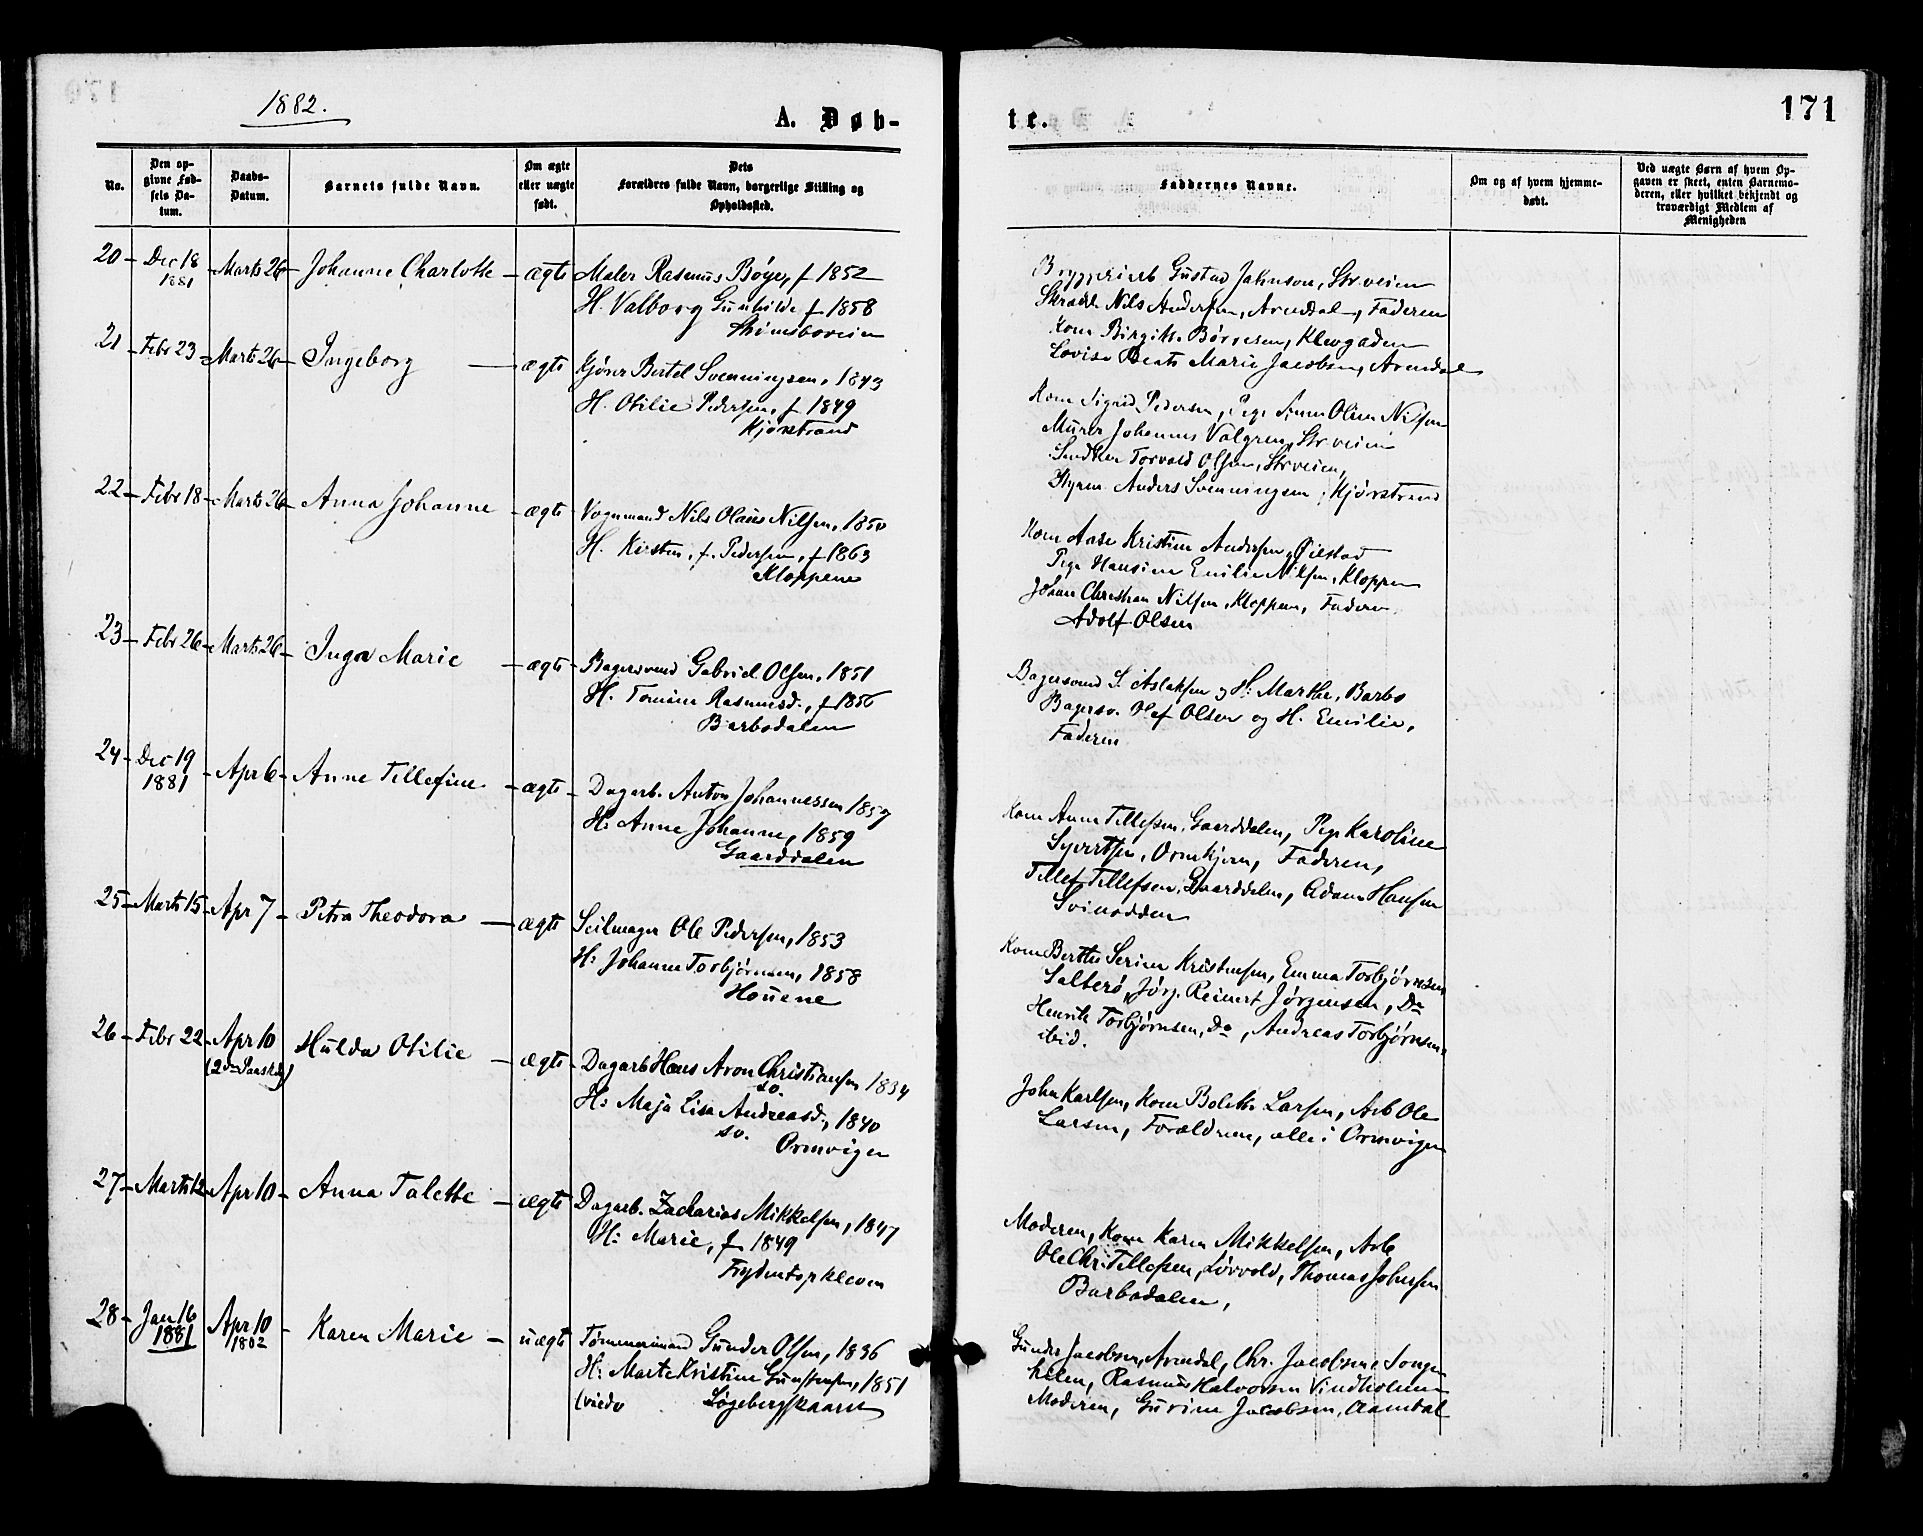 1882.
A. Døb-
No.
Den op-
givne Fød-
sels Da-
tum.
Daabs-
Datum.
Barnets fulde Navn.
Om ægte
eller uægte
født.
Dets
Forældres fulde Navn, borgerlige Stilling og
Opholdssted.
20 Dec 18 1881 Marts 26 Johanne Charlotte ægte
Maler Rasmus Bøye, f 1852
H. Valborg Gunhilde f 1858
21 Febr 23 Marts 26 Ingeborg ægte
Kjører Bertel Svenningsen, 1843
H. Otilie Pedersen, f 1849
Kjørstrand
22 Febr 18 Marts 26 Anna Johanne ægte
Vognmand Nils Olaus Nilsen, 1850
H. Kirsten, f. Pedersen, f 1863
Kloppene
23 Febr 26 Marts 26 Inga Marie ægte
Bagersvend Gabriel Olsen, 1851
H. Tomine Rasmusd., f 1856
Barbodalen
24 Dec 19 1881 Apr 6 Anne Tillefine ægte
Dagarb. Anton Johannessen 1857
H: Anne Johanne, 1859
Gaarddalen
25 Marts 15 Apr 7 Petra Theodora ægte
Seilmager Ole Pedersen, 1853
H: Johanne Torbjørnsen, 1858
Houene
26 Febr 22 Apr 10 (2den Paaskedg) Hulda Otilie ægte
Dagarb Hans Aron Christiansen 1834
sv.
H: Maja Lisa Andreasd., 1840
sv.
Ormvigen
27 Marts 12 Apr 10 Anna Talette ægte
Dagarb. Zacharias Mikkelsen, 1847
H: Marie, f 1849
28 Jan 16 1881 Apr 10 1882 Karen Marie uægte
Tømmermand Gunder Olsen, 1836
H: Marte Kristine Gunstensen, 1851
Løgebergskaaret
te.
171
Faddernes Navne.
Om og af hvem hjemme-
døbt.
Ved uægte Børn af hvem Op-
gaven er skeet, enten Barnemo-
deren, eller hvilket bekjendt og
troværdigt Medlem af
Menigheden
Bryggeriarb Gustav Johnson, Strveien
Skrædd. Nils Andersen, Arendal, Faderen
Kone Birgitte Børresen, Klevgaden
Lovise Beate Marie Jacobsen, Arendal
Kone Sigrid Pedersen, Pige Anne Oline Nilsen
Murer Johannes Valgren, Strveien
Torvald Olsen, Strveien,
Styrm. Anders Svenningsen, Kjørstrand
Kone Aase Kristine Andersen, Øiestad
Pige Hansine Emilie Nilsen, Kloppen
Johan Christian Nilsen, Kloppene, Faderen
Adolf Olsen
Bagersvend S. Aslaksen og H: Marthe, Barbo
Bagersv. Olaf Olsen og H. Emilie,
Faderen
Kone Anne Tellefsen, Gaarddalen, Pige Karoline
Syvertsen, Ormekjern, Faderen,
Tellef Tellefsen, Gaarddalen, Adam Hansen
Svinodden
Kone Berthe Serine Kristensen, Emma Torbjørnsen,
Salterø, Jørg. Reinert Jørgensen, Do
Henrik Torbjørnsen, Do, Andreas Torbjørnsen,
ibid.
John Karlsen, Kone Bolette Larsen, Arb Ole
Larsen, Forældrene, alle i Ormvigen
Moderen, Kone Karen Mikkelsen, Arb
Ole Chr. Tellefsen, Lørvold, Thomas Johnsen
Barbodalen,
Gunder Jacobsen, Arendal, Chr. Jacobsen, Songe
kilen, Rasmus Halvorsen Vindholmen
Moderen, Gurine Jacobsen, Aamdal